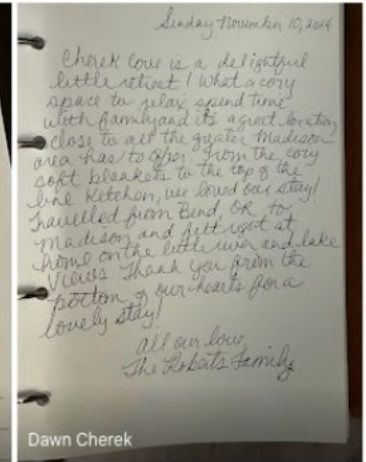 Sunday November 10, 2024
Cherek Cove is a delightful
little retreat! What a cozy
space to relax spend time
with family and it's a great location
close to all the greater Madison
area has to offer. From the cozy
soft blankets to the top of the
line kitchen, we loved our stay!
Travelled from Bend, OR to
Madison and felt right at
home on the little river and lake
views. Thank you from the
bottom of our hearts for a
lovely stay!
All our love,
The Roberts Family
Dawn Cherek